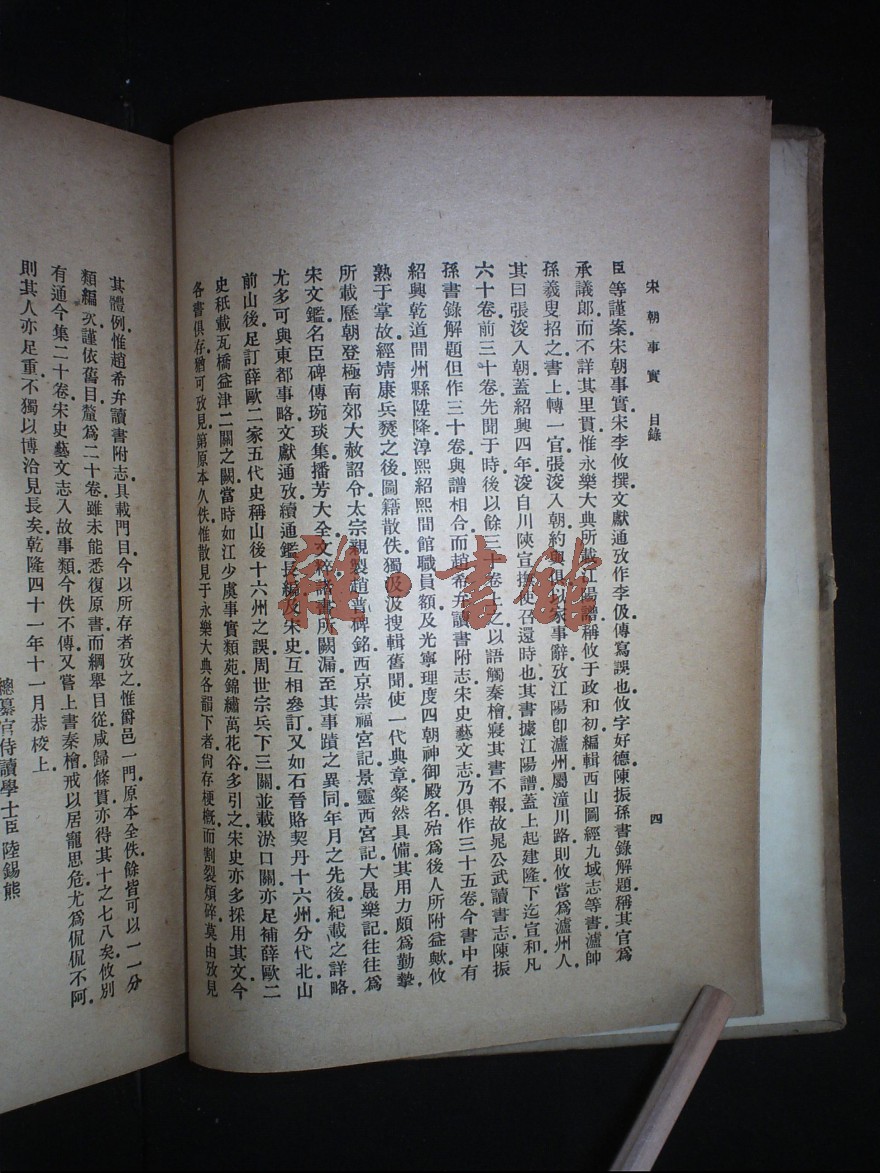 宋朝事實 目錄 四
臣等謹案宋朝事實宋李攸撰文獻通攷作李伋傳寫誤也攸字好德陳振孫書錄解題稱其官爲
承議郎而不詳其里貫惟永樂大典所載江陽譜稱攸于政和初編輯西山圖經九域志等書瀘帥
孫羲叟招之書上轉一官張浚入朝約與俱以家事辭攷江陽卽瀘州屬潼川路則攸當爲瀘州人
其曰張浚入朝蓋紹興四年浚自川陝宣撫使召還時也其書據江陽譜蓋上起建隆下迄宣和凡
六十卷前三十卷先聞于時後以餘三十卷上之以語觸秦檜寢其書不報故晁公武讀書志陳振
孫書錄解題但作三十卷與譜相合而趙希弁讀書附志宋史藝文志乃俱作三十五卷今書中有
紹興乾道間州縣陞降淳熙紹熙間館職員額及光寧理度四朝神御殿名殆爲後人所附益歟攸
熟于掌故經靖康兵燹之後圖籍散佚獨汲汲搜輯舊聞使一代典章粲然具備其用力頗爲勤摯
所載歷朝登極南郊大赦詔令太宗親製趙普碑銘西京崇福宮記景靈西宮記大晟樂記往往爲
宋文鑑名臣碑傳琬琰集播芳大全文粹諸書所闕漏至其事蹟之異同年月之先後紀載之詳略
尤多可與東都事略文獻通攷續通鑑長編及宋史互相參訂又如石晉賂契丹十六州分代北山
前山後足訂薛歐二家五代史稱山後十六州之誤周世宗兵下三關並載淤口關亦足補薛歐二
史秖載瓦橋益津二關之闕當時如江少虞事實類苑錦繡萬花谷多引之宋史亦多採用其文今
各書俱存猶可攷見第原本久佚惟散見于永樂大典各韻下者尙存梗概而割裂煩碎莫由攷見
其體例惟趙希弁讀書附志具載門目今以所存者攷之惟爵邑一門原本全佚餘皆可以一一分
類編次謹依舊目釐爲二十卷雖未能悉復原書而綱舉目從咸歸條貫亦得其十之七八矣攸別
有通今集二十卷宋史藝文志入故事類今佚不傳又嘗上書秦檜戒以居寵思危尤爲侃侃不阿
則其人亦足重不獨以博洽見長矣乾隆四十一年十一月恭校上
總纂官侍讀學士臣陸錫熊